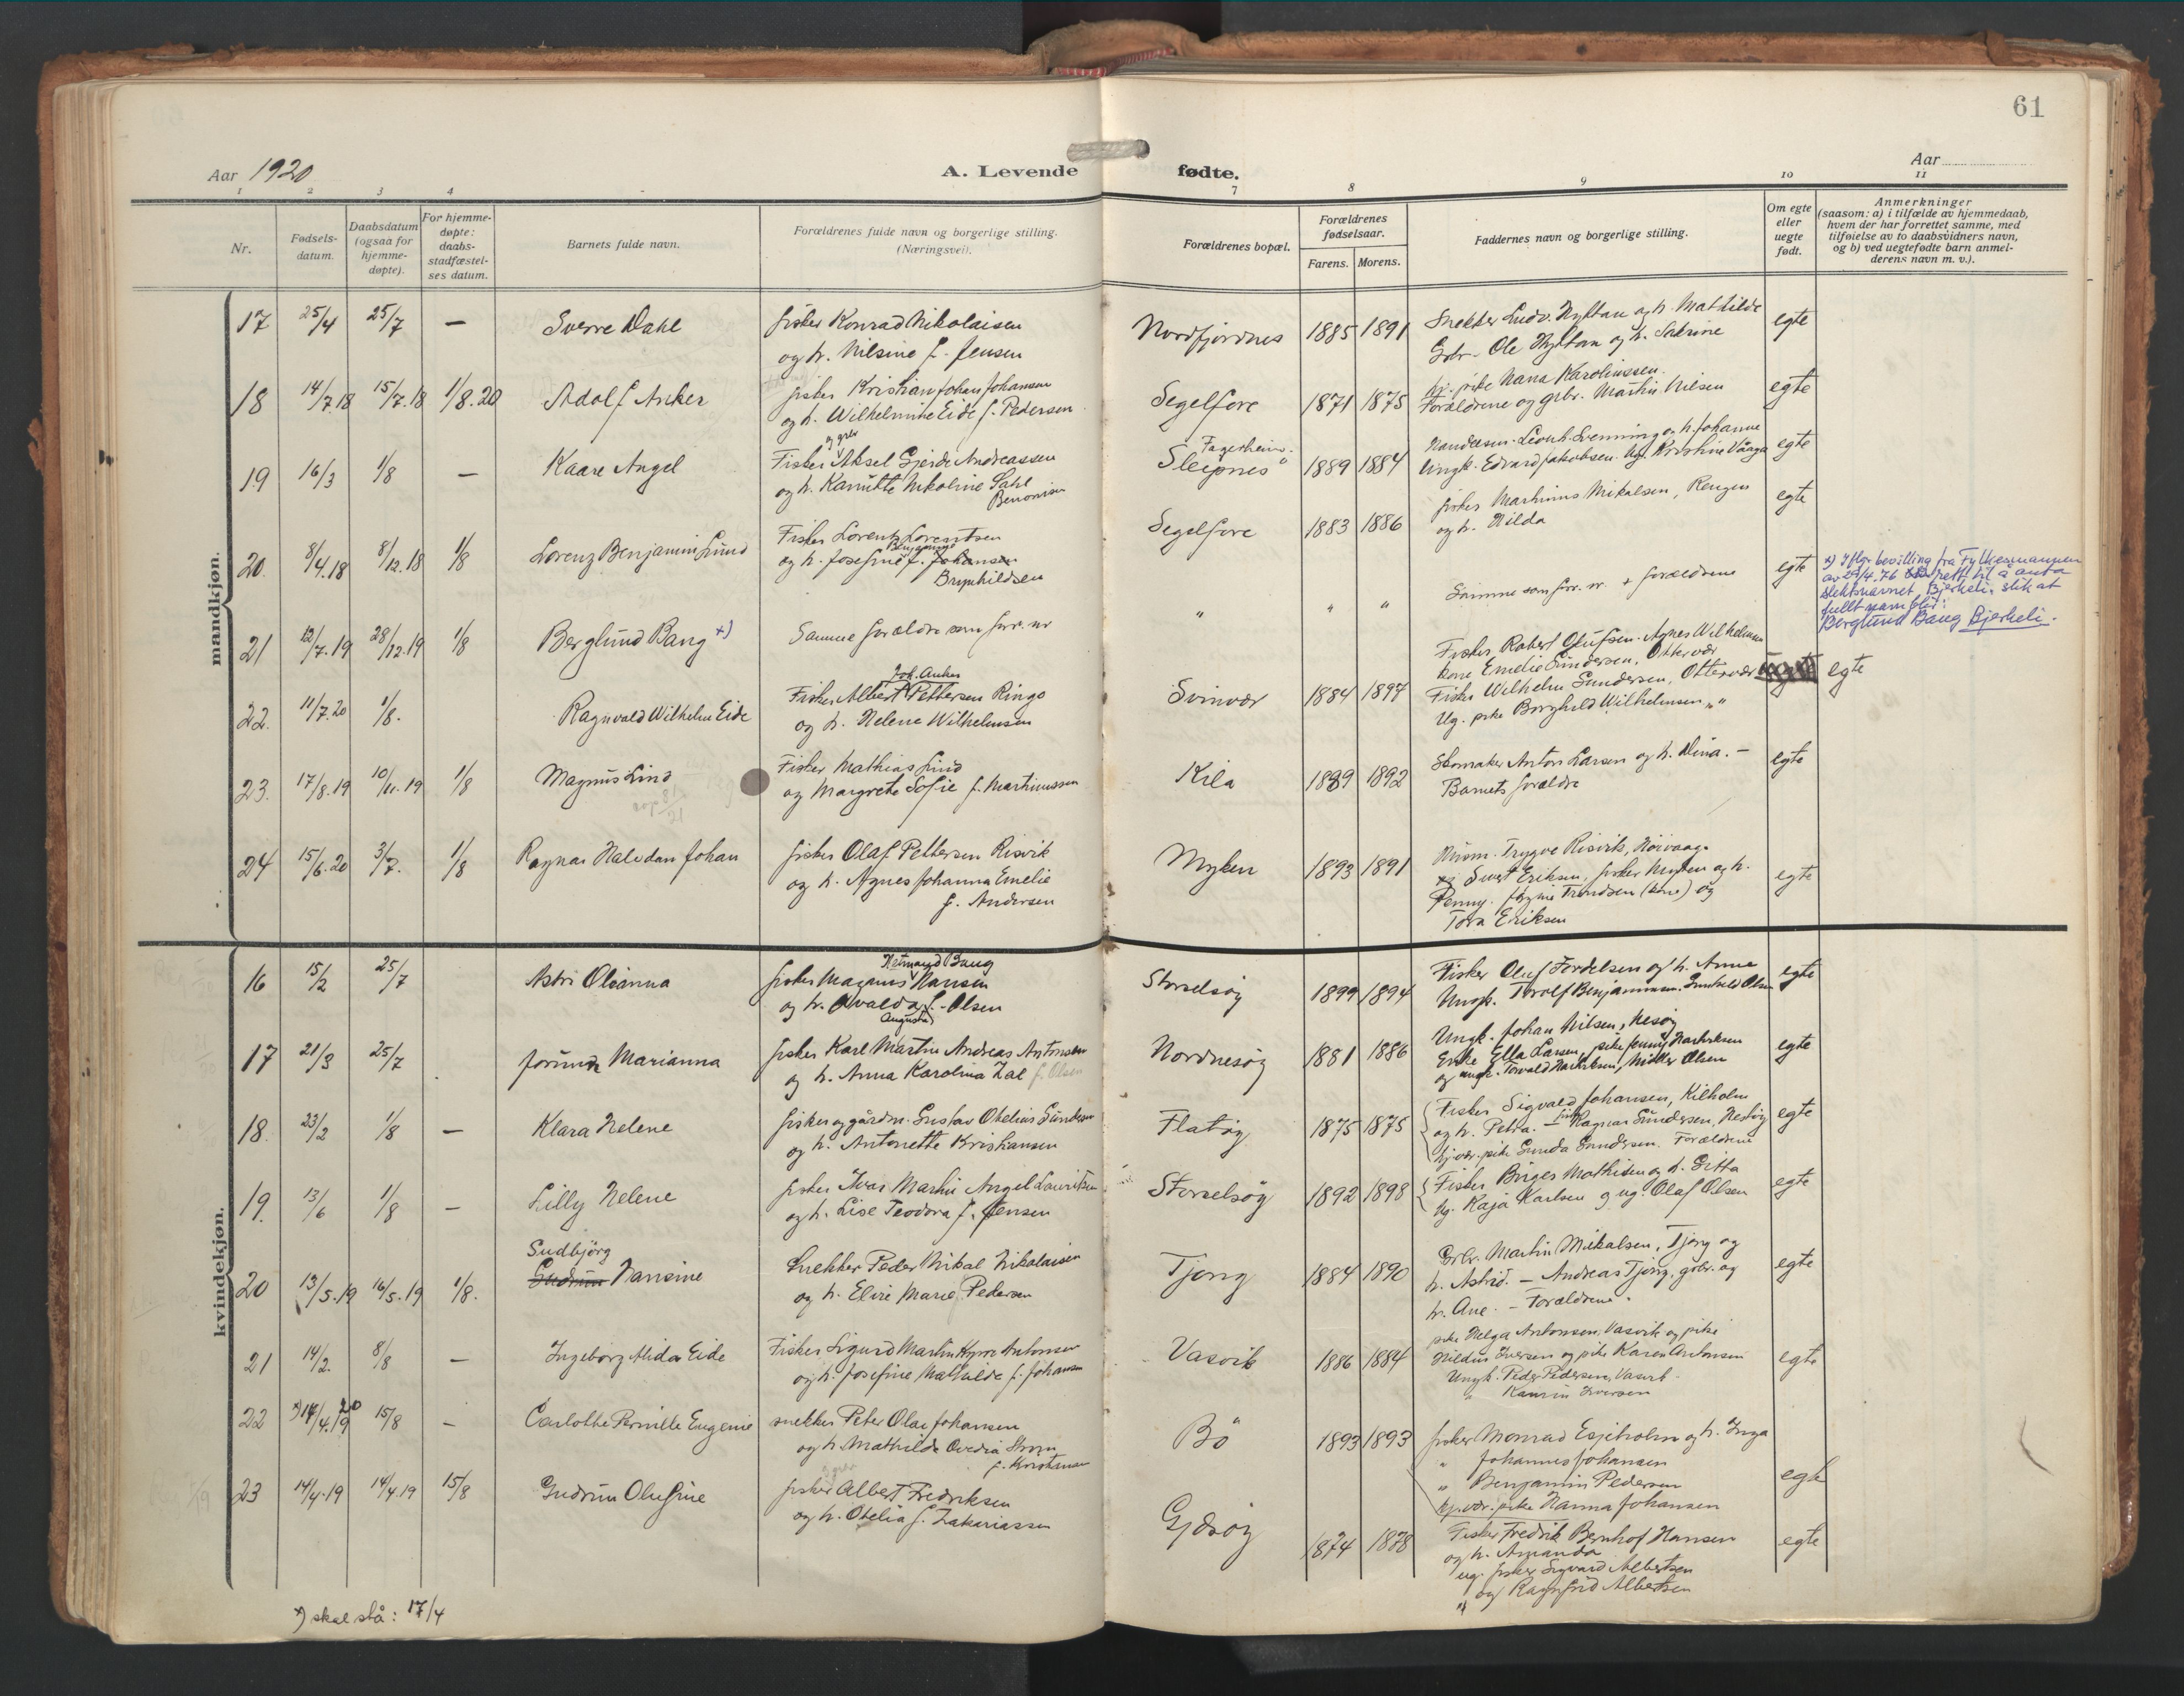 61
Aar 1920
A. Levende
fødte.
Aar
1 2 3 4
7 8 9 10 11
Nr.
Fødsels-
datum.
Daabsdatum
(ogsaa for
hjemme-
døpte).
For hjemme-
døpte:
daabs-
stadfæstel-
ses datum.
Barnets fulde navn.
Forældrenes fulde navn og borgerlige stilling.
(Næringsvei).
Forældrenes bopæl.
Forældrenes
fødselsaar.
Farens. Morens.
Faddernes navn og borgerlige stilling.
Om egte
eller
uegte
født.
Anmerkninger
(saasom: a) i tilfælde av hjemmedaab,
hvem der har forrettet samme, med
tilføielse av to daabsvidners navn,
og b) ved uegtefødte barn anmel-
derens navn m. v.).
mandkjøn.
17 25/4 25/7 — Sverre Dahl
fisker Konrad Nikolaisen
og h. Nilsine f. Jensen
Nordfjordnes 1885 1891
Snekker Ludv. Hyltan og h. Mathilde
Gbr. Ole Hyltan og h. Sabrine
egte
18 14/7.18 15/7.18 1/8.20 Adolf Anker
fisker Kristian Johan Johansen
og h. Wilhelmine Eide f. Pedersen
Segelfore 1871 1875
pike Nana Karolinssen.
Forældrene og gbr. Martin Nilsen
egte
19 16/3 1/8 — Kaare Angel
og gbr
Fisker Aksel Gjerde Andreassen
og h. Kanutte Nikoline Dahl
Benonisen
Fagerheim.
Sleipnes 1889 1884
Handelsm. Leonh. Svenning og h. Johanne
Ungk. Edvard Jakobsen. Ug. Kristine Vaaga
egte
20. 8/4.18 8/12.18 1/8 Lorenz Benjamin Lund
Fisker Lorentz Lorentsen
og h. Josefine f. Johansen
Brynhildsen
Segelfore 1883 1886
fisker Martinus Mikalsen, Rengen
og h. Hilda
egte
21 12/7.19 28/12.19 1/8 Berglund Bang +)
Samme forældre som forr. nr
" " "
Samme som forr. nr. + forældrene
egte
x) Iflge bevilling fra Fylkesmannen
av 29/4.76 rett til å anta
slektsnavnet Bjerkeli, slik at
fullt navn blir:
Berglund Bang Bjerkeli.
22. 11/7.20 1/8. Ragnvald Wilhelm Eide
Joh. Anker
Fisker Albert Pettersen Ringo
og h. Helene Wilhelmsen
Svinvær 1884 1897
Fisker Robert Olufsen. Agnes Wilhelmsen
kone Emelie Gundersen, Ottervær
Fisker Wilhelm Gundersen, Ottervær
Ug. pike Borghild Wilhelmsen " "
egte
23. 17/8.19 10/11.19 1/8 Magnus Lind
Fisker Mathias Lind
og Margrete Sofie f. Martinussen
Kila 1889 1892
Skomaker Anton Larsen og h. Dina. —
Barnets forældre
egte
24 15/6.20 3/7. 1/8 Ragnar Halvdan Johan
fisker Olaf Pettersen Risvik
og h. Agnes Johanna Emelie
f. Andersen
Myken 1893 1891
Husm. Trygve Risvik, Nöivaag.
Sivert Eriksen, fisker Myken og h.
Penny. Trondsen (kone) og
Tora Eriksen
egte
kvindekjøn.
16 15/2 25/7 Astri Oleanna
Hetmand Bang
fisker Magnus Hansen
og h. Alvalda f. Olsen
Augusta
Storselsøy 1899 1894
Fisker Oluf Tordelsen og h. Anna
Ungk. Torolf Benjaminsen. Gunhild Olsen
egte
17 21/3 25/7 Jorunn Marianna
fisker Karl Martin Andreas Antonsen
og h. Anna Karolina Zal f. Olsen
Nordnesøy 1881 1886
Ungk. Johan Nilsen, Nesøy
Enke Ella Larsen, pike Jenny Hartviksen
og ungk. Torvald Hartviksen, Möller Olsen
egte
18. 23/2 1/8 — Klara Helene
fisker og gårdm. Gustav Otelius Gundersen
og h. Antonette Kristiansen
Flatøy 1875 1875
Fisker Sigvald Johansen, Kilholm
og h. Petra. — Ragnar Gundersen, Nesøy
hj.vær. pike Gunda Gundersen. Forældrene
egte
19. 13/6 1/8 — Lilly Helene
fisker Ivar Martin Angel Lauritsen
og h. Lise Teodora f. Jensen
Storselsøy 1892 1898
Fisker Birger Mathisen og h. Gitta
Ug. Kaja Karlsen og ug. Olaf Olsen
egte
20 13/5.19 16/5.19 1/8.
Gudbjörg
Gudrun Hansine
Snekker Peder Mikal Nikolaisen
og h. Elise Marie Pedersen
Tjong 1884 1890
Gbr. Martin Mikalsen, Tjong og
h. Astrid. — Andreas Tjong, gbr. og
h. Ane. — Forældrene.
egte
21 14/2. 8/8 — Ingeborg Alida Eide
Fisker Sigurd Martin Antonsen
og h. Josefine Mathilde f. Johansen
Vasvik 1886 1884
pike Helga Antonsen, Vasvik og pike
Hildur Iversen og pike Karen Antonsen
Ungk. Peder Pedersen, Vasvik.
" Iversen
egte
22 x) 14/4.20 15/8 — Carlotte Pernille Eugenie
snekker Peter Olai Johansen
og h. Mathilde Ovedia Strøm
f. Kristensen
Bö 1893 1893
fisker Monrad Esjeholm og h. Inga
" Johannes Johansen
" Benjamin Pedersen
hj.vær. pike Hanna Johansen
egte
23 14/4.19 14/4.19 15/8 Gudrun Olufine
fisker Albert Fredriksen
og h. Otelia f. Zakariassen
Gjesøy 1874 1878
Fisker Fredrik Bernhof Hansen
og h. Amanda
ug. fisker Sigvard Albertsen
" og Ragnfrid Albertsen
egte
x) skal stå: 17/4